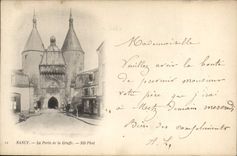 Mademoiselle
Veuillez avoir la bonté
de prévenir monsieur
votre père que j'irai
à Metz demain
Bien des compliments
A. L.
12 NANCY. — La Porte de la Craffe. — ND Phot